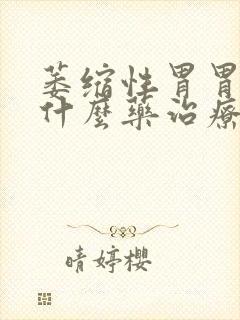 萎缩性胃胃
什麽藥治療
晴婷樱